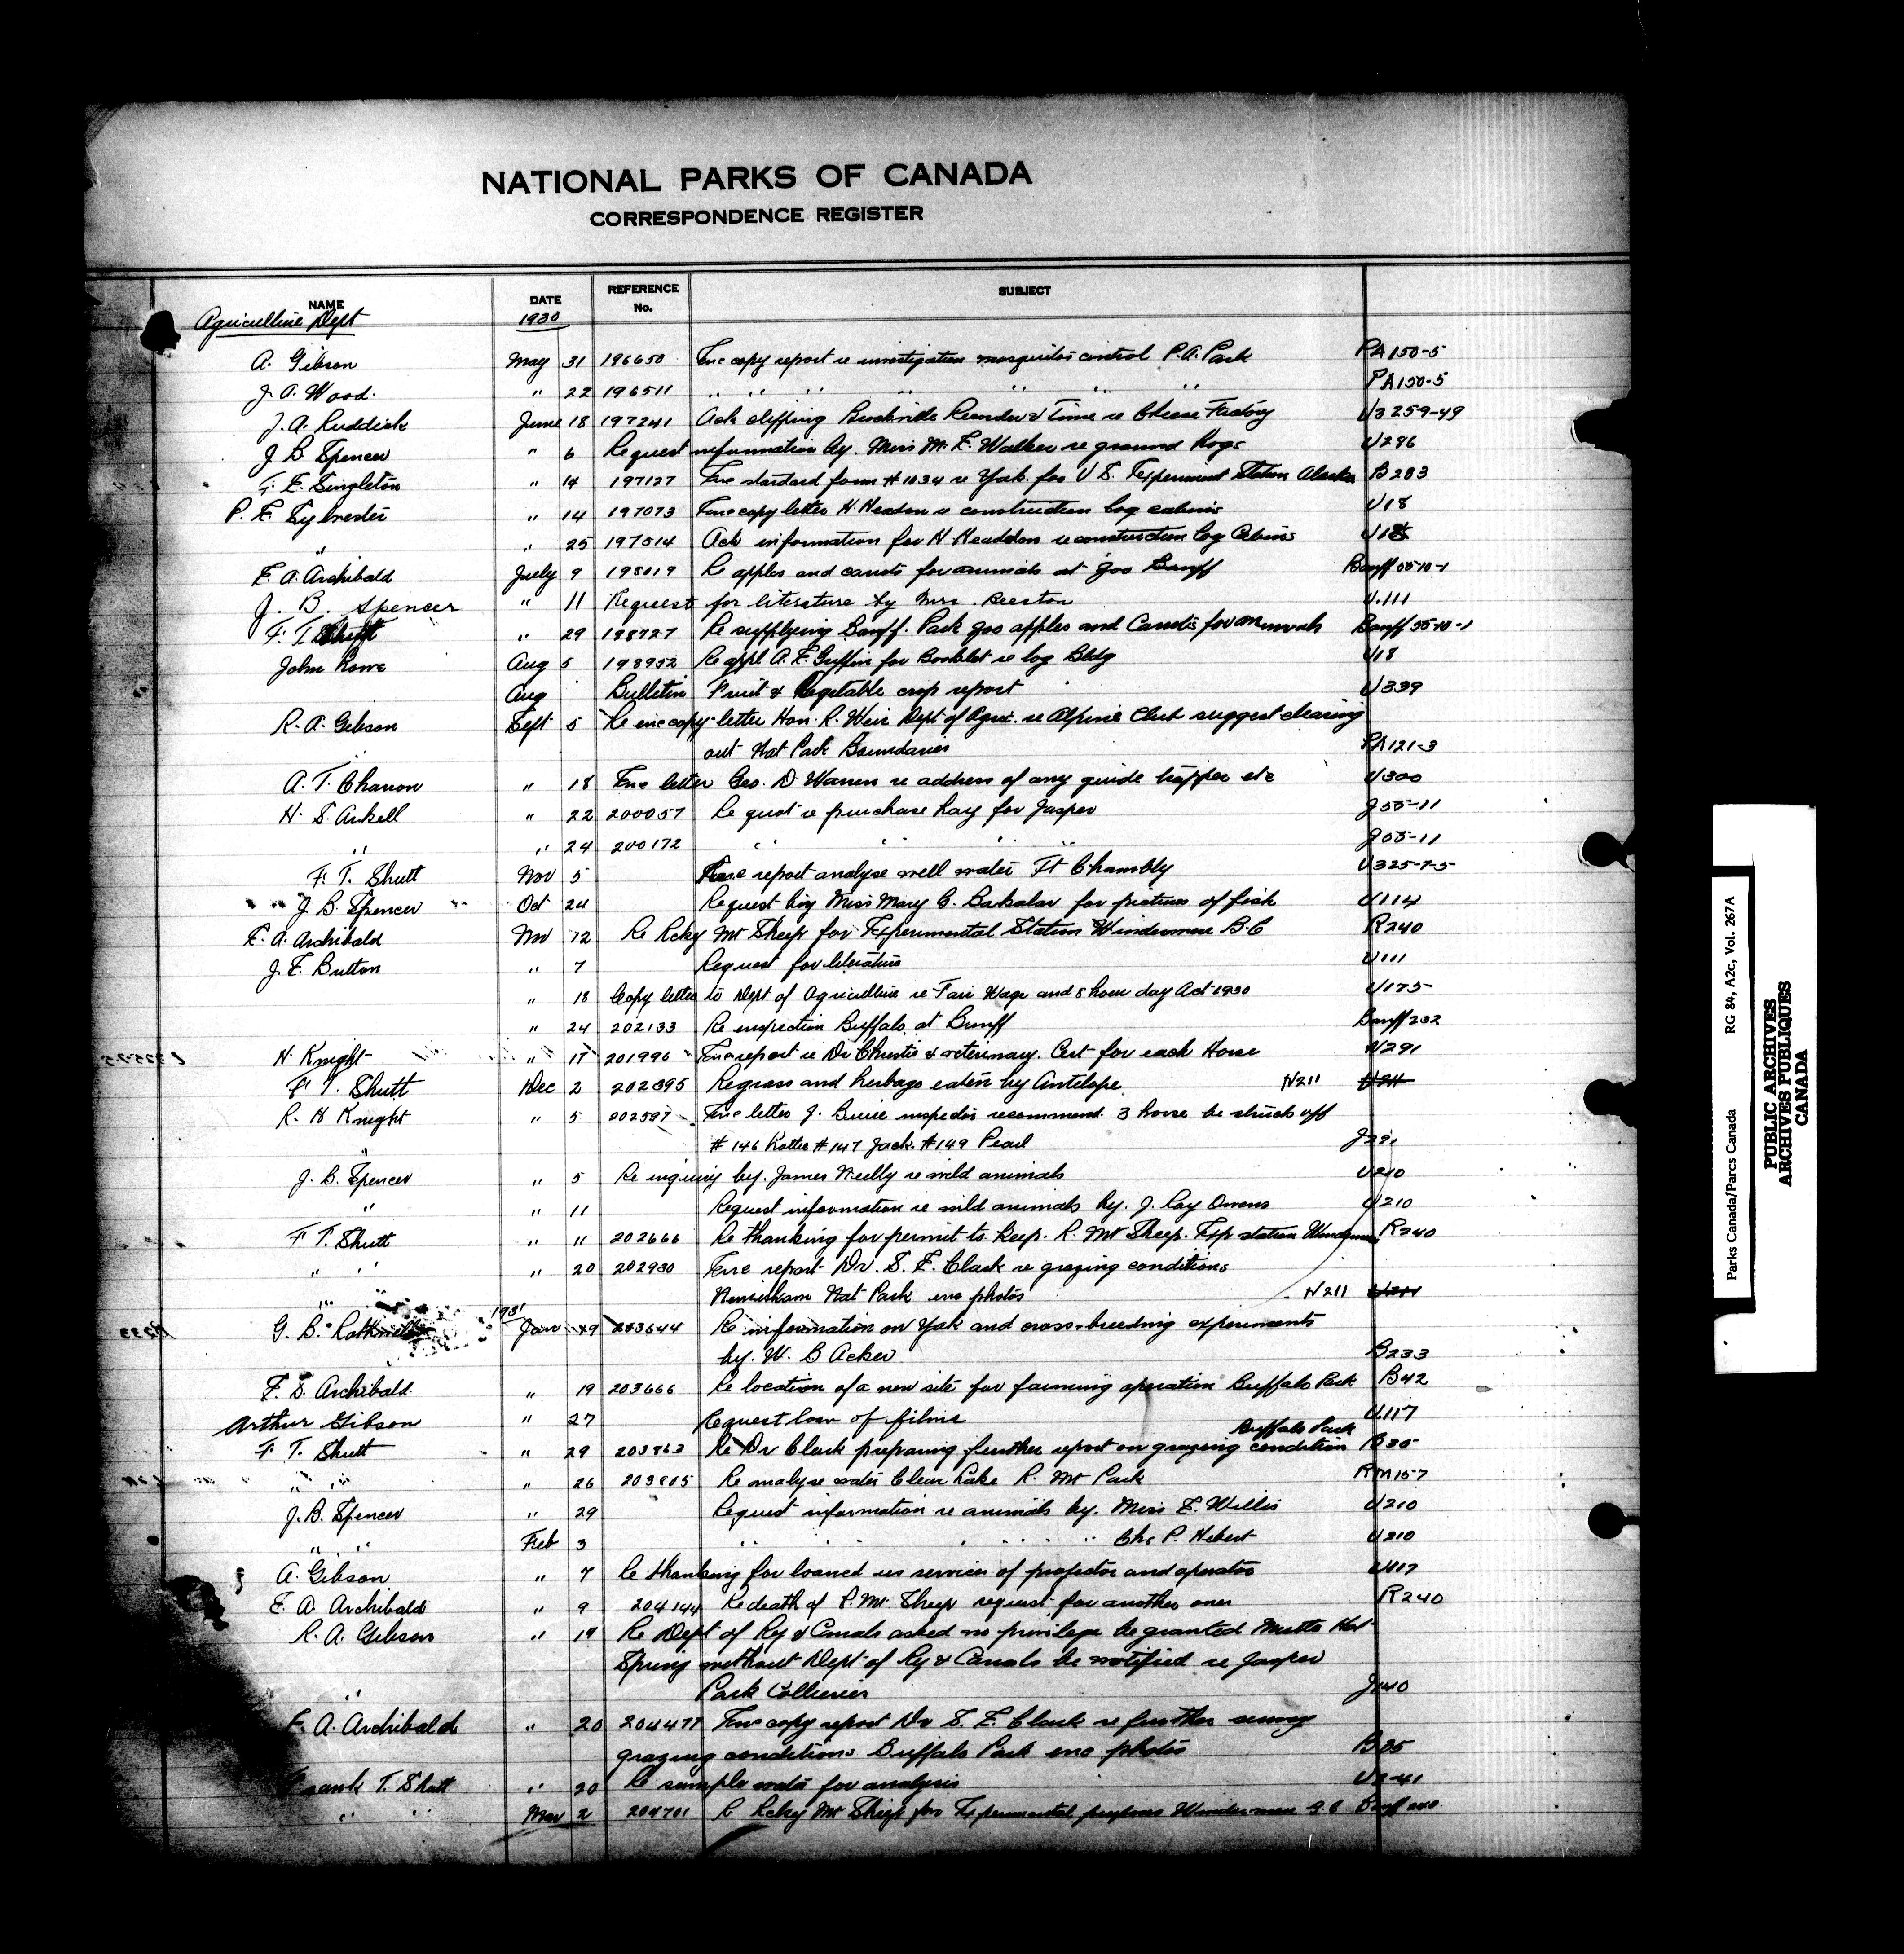 NATIONAL PARKS OF CANADA
CORRESPONDENCE REGISTER
NAME DATE REFERENCE No. SUBJECT
Agriculture Dept 1930
A. Gibson May 31 196650 Enc copy report re investigation mosquitos control P.A. Park PA150-5
J. A. Wood. " 22 196511 " " " " " " " PA150-5
J. A. Ruddick June 18 197241 Ack clipping Recorder & Time re Cheese Factory U3259-49
J. B. Spencer " 6 Request information by. Miss M. E. Walker re ground hogs U296
F. E. Singleton " 14 197127 Enc standard form #1034 re Yak for U S. Experiment Station Alaska B233
P. E. Sylvester " 14 197073 Enc copy letter H. Headon re construction log cabins U18
" " 25 197514 Ack information for H. Headdon re construction log Cabins U18
E. A. Archibald July 9 198019 Re apples and carrots for animals at zoo Banff Banff 55-10-1
J. B. Spencer " 11 Request for literature by Mrs. Beeston U.111
F. T. Shutt " 29 198727 Re supplying Banff. Park zoo apples and Carrots for animals Banff 55-10-1
John Rowe Aug 5 198952 Re appl A. E. Griffin for Booklet re log Bldg U18
Aug Bulletin Fruit & Vegetable crop report U339
R. A. Gibson Sept 5 Re enc copy letter Hon. R. Weir Dept of Agric. re Alpine Club suggest clearing
out Nat Park Boundaries PA121-3
A. T. Charron " 18 Enc letter Geo. D. Warren re address of any guide trapper etc U300
H. S. Arkell " 22 200057 Re quot re purchase hay for Jasper J55-11
" " 24 200172 " " " " J55-11
F. T. Shutt Nov 5 Enc report analyse well water Ft Chambly U325-7-5
J. B. Spencer Oct 24 Request by Miss Mary G. for pictures of fish U114
E. A. Archibald Nov 12 Re Rcky Mt Sheep for Experimental Station Windermere B.C R240
J. E. Button " 7 Request for literature U111
" 18 Copy letter to Dept of Agriculture re Fair Wage and 8 hour day Act 1930 U175
" 24 202133 Re inspection Buffalo at Banff Banff 232
N. Knight " 17 201996 Enc report re Dr Christie & veterinary. Cert for each Horse N291
F. T. Shutt Dec 2 202395 Re grass and herbage eaten by Antelope N211
R. N Knight " 5 202597 Enc letter J. inspector recommend 3 horse be struck off
" #146 #147 Jack #149 Pearl J291
J. B. Spencer " 5 Re inquiry by. James Reilly re wild animals U210
" " 11 Request information re wild animals by. J. Ray Owens U210
F T. Shutt " 11 202666 Re thanking for permit to keep. R. Mt Sheep. Exp station Windermere R240
" " " 20 202930 Enc report Dr. S. E. Clark re grazing conditions
" " Nemiskam Nat Park enc photos N211
1931
G. B. Jan 19 203644 Re information on Yak and cross-breeding experiments
by. W. B Acker B233
E. S. Archibald. " 19 203666 Re location of a new site for farming operation Buffalo Park B42
Arthur Gibson " 27 Request loan of films U.117
Buffalo Park
F T. Shutt " 29 203863 Re Dr Clark preparing further report on grazing condition B35
" " " 26 203805 Re analyse water Clear Lake R. Mt Park RM157
J. B. Spencer " 29 Request information re animals by. Miss E. Willis U210
" " Feb 3 " " " " " Chs P. Hebert U210
A. Gibson " 7 Re thanking for loaned us services of projector and operator U117
E. A. Archibald " 9 204144 Re death of R. Mt. Sheep request for another ones R240
R. A. Gibson " 19 Re Dept of Ry & Canals asked no privilege be granted Miette Hot
Spring without Dept of Ry & Canals be notified re Jasper
" Park Collieries J140
E. A. Archibald " 20 204477 Enc copy report Dr S. E. Clark re further survey
grazing conditions Buffalo Park enc photos B35
Frank T. Shutt " 20 Re sample water for analysis U2-41
" " Mar 2 204701 R Rcky Mt Sheep for Experimental purpose Windermere B.C Banff
Parks Canada/Parcs Canada RG 84, A2c, Vol. 267A
PUBLIC ARCHIVES
ARCHIVES PUBLIQUES
CANADA